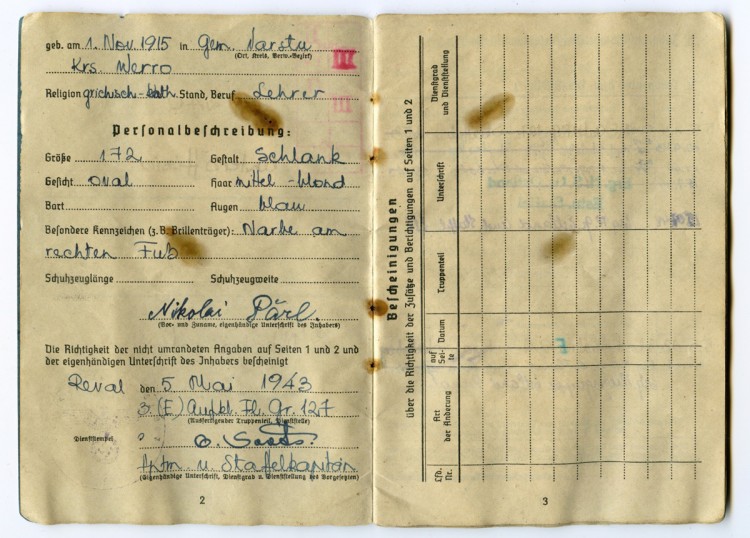 geb. am 1. Nov. 1915 in Gem. Varstu
(Ort, Kreis, Verw.-Bezirk)
Krs. Werro
III
Religion grichisch-kath. Stand, Beruf Lehrer
III
Personalbeschreibung:
Größe 172 Gestalt Schlank
Gesicht oval Haar mittel-blond
Bart Augen blau
Besondere Kennzeichen (z. B. Brillenträger): Narbe am
rechten Fuß
Schuhzeuglänge Schuhzeugweite
Nikolai Pärl.
(Vor- und Zuname, eigenhändige Unterschrift des Inhabers)
Die Richtigkeit der nicht umrandeten Angaben auf Seiten 1 und 2 und
der eigenhändigen Unterschrift des Inhabers bescheinigt
Reval den 5. Mai 1943
3. (E) Aufkl. Fl. Gr. 127
(Ausfertigender Truppenteil, Dienststelle)
Dienststempel
Hptm. u. Stafelkapitän
(Eigenhändige Unterschrift, Dienstgrad u. Dienststellung des Vorgesetzten)
2
Bescheinigungen
über die Richtigkeit der Zusätze und Berichtigungen auf Seiten 1 und 2
Lfd. Nr.
Art der Änderung
auf Sei- te
Datum
Truppenteil
Unterschrift
Dienstgrad und Dienststellung
3